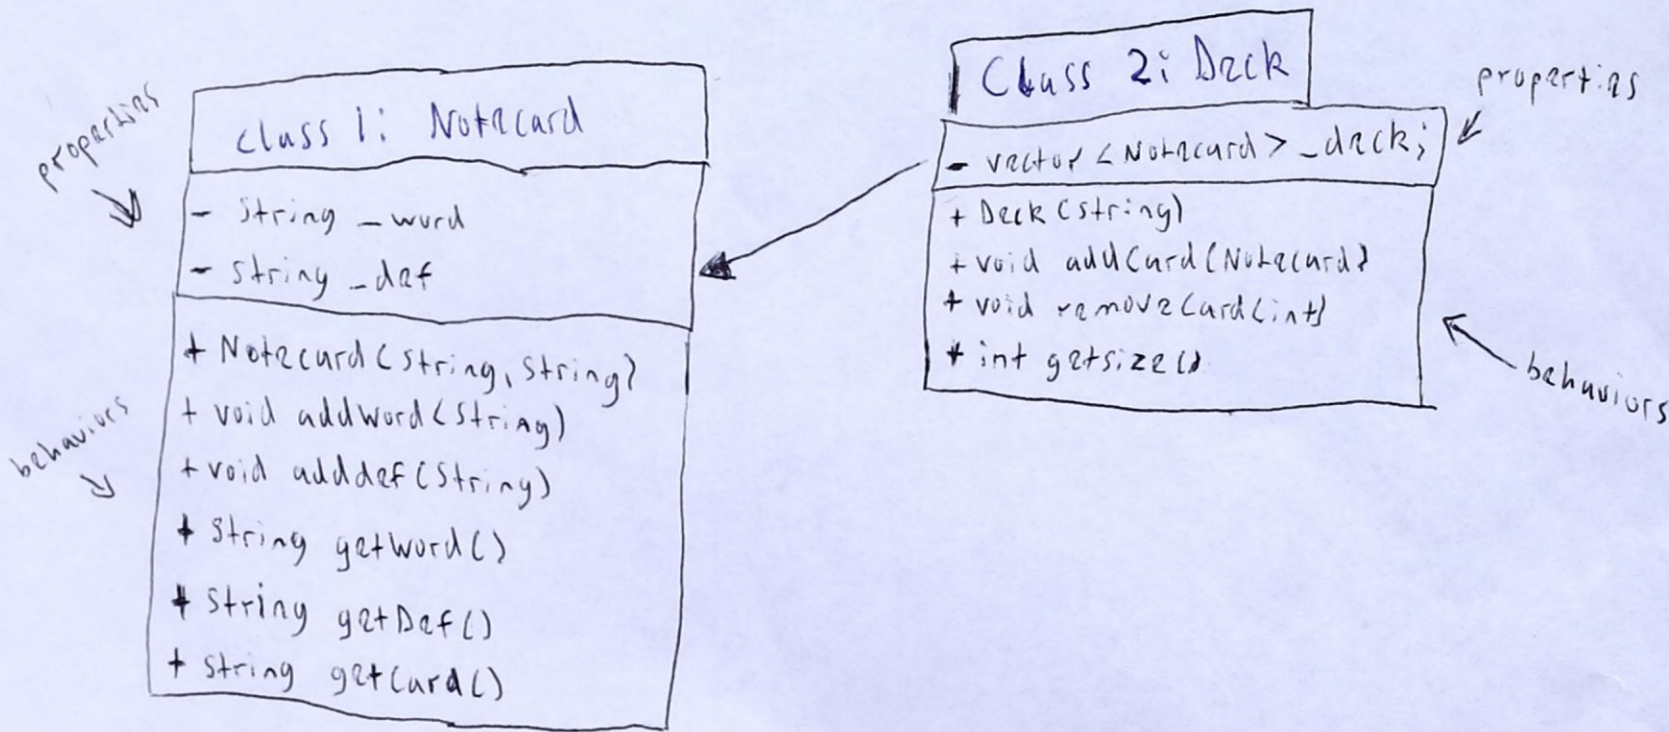 properties
class 1: Notecard
- string _word
- string _def
behaviors
+ Notecard(string, string)
+ void addWord(string)
+ void adddef(string)
+ string getWord()
+ string getDef()
+ string getCard()
Class 2: Deck
properties
- vector <Notecard> _deck;
+ Deck(string)
+ void addCard(Notecard)
+ void removeCard(int)
+ int getsize()
behaviors